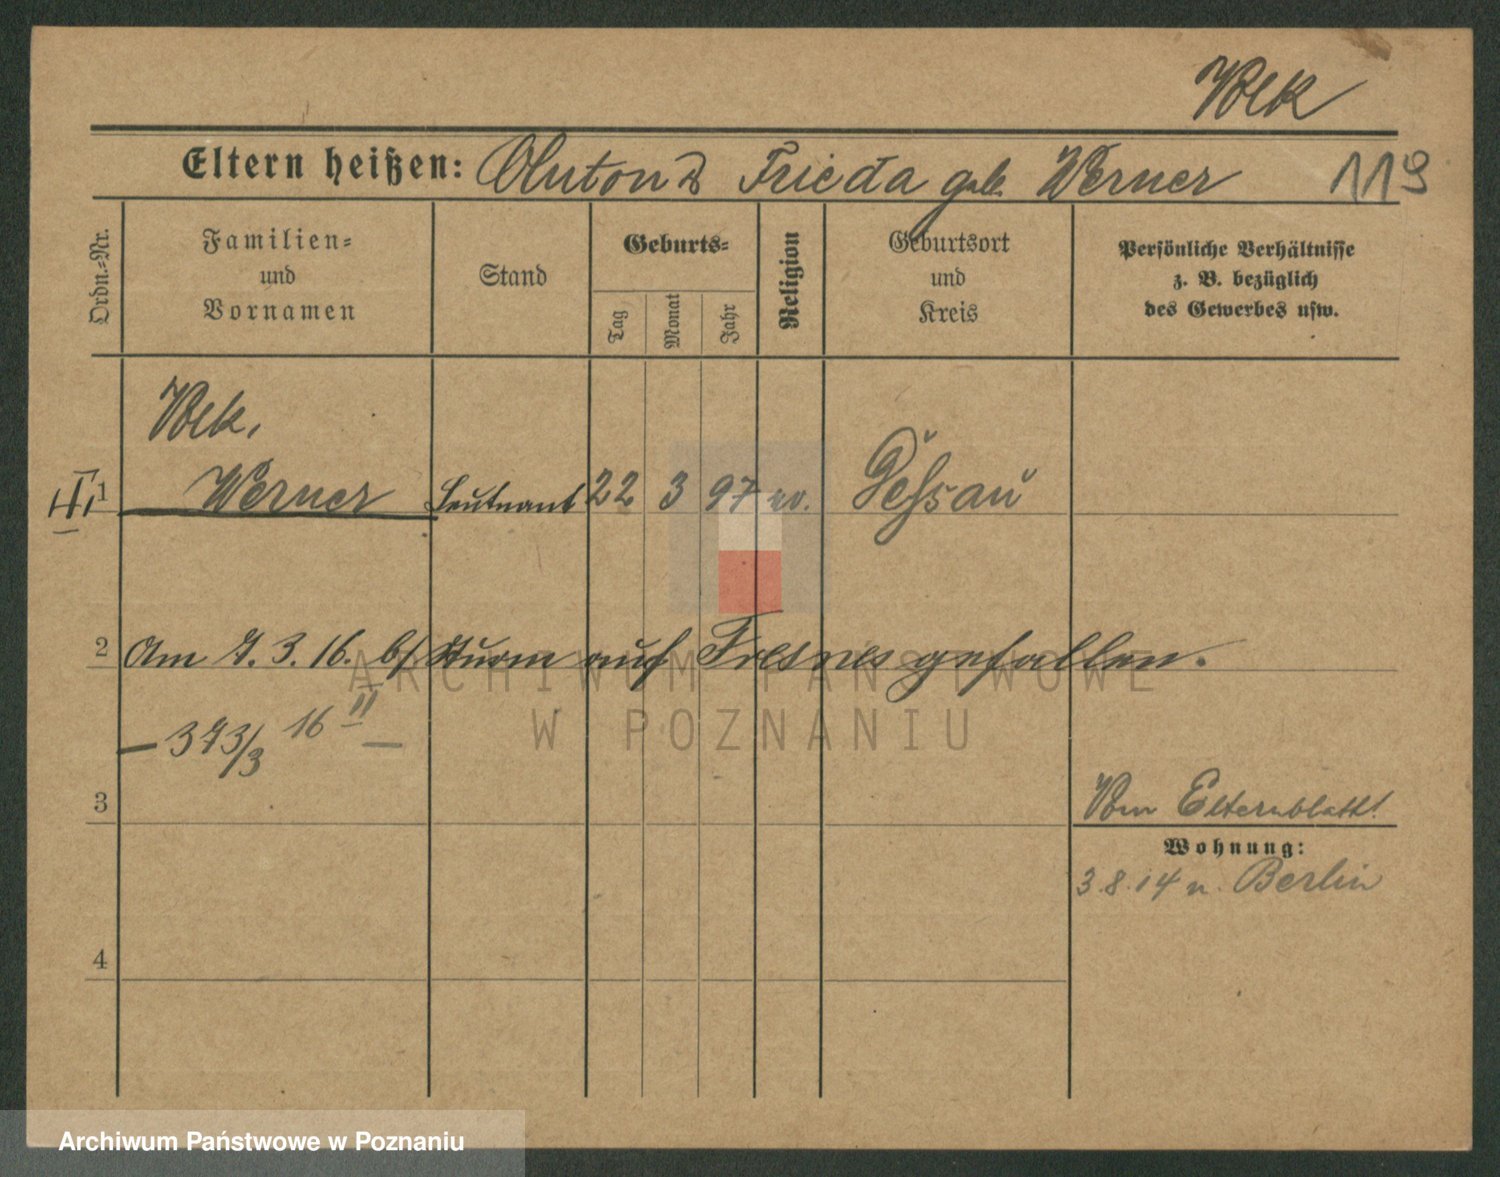 Volk
Eltern heißen: Anton & Frieda geb. Werner 119
Ordn.-Nr.
Familien-
und
Vornamen
Stand
Geburts-
Tag
Monat
Jahr
Religion
Geburtsort
und
Kreis
Persönliche Verhältnisse
z. B. bezüglich
des Gewerbes usw.
Volk,
1 Werner Leutnant 22 3 97 ev. Dessau
2 Am 7. 3. 16. b/ Sturm auf Fresnes gefallen.
373/3 16 II
3
Vom Elternblatt!
Wohnung:
3.8.14 n. Berlin
4
ARCHIWUM PAŃSTWOWE
W POZNANIU
Archiwum Państwowe w Poznaniu